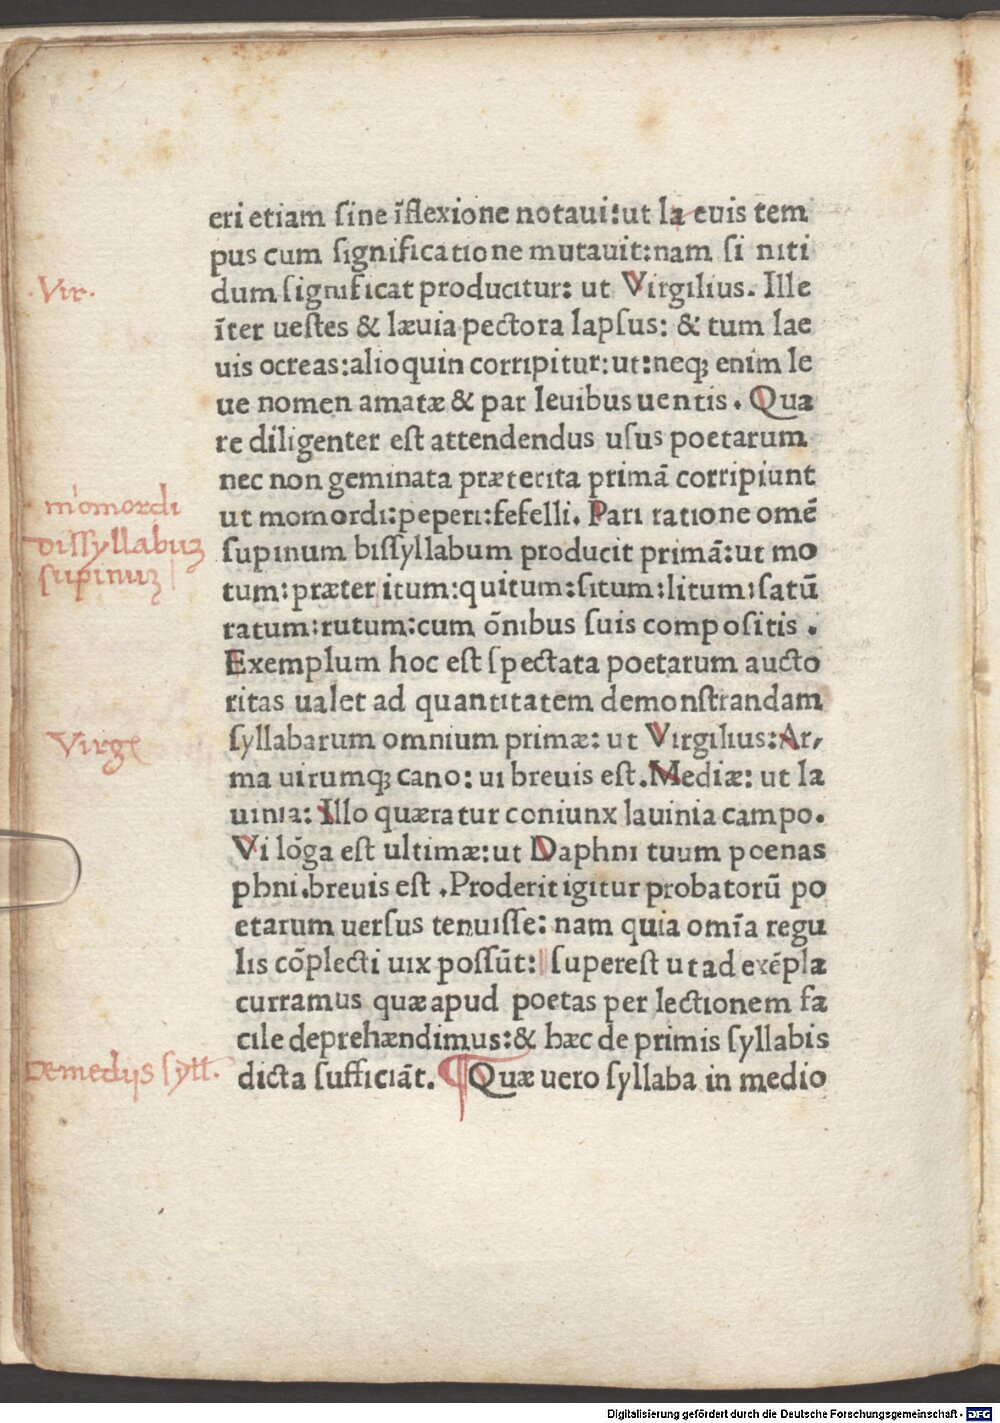 eri etiam ſine ĩflexione notaui:ut la euis tem
pus cum ſignificatione mutauit:nam ſi niti
·Vir·
dum ſignificat producitur: ut Virgilius. Ille
ĩter ueſtes & læuia pectora lapſus: & tum lae
uis ocreas:alioquin corripitur:ut:neqꝫ enim le
ue nomen amatæ & par leuibus uentis. Qua
re diligenter eſt attendendus uſus poetarum
nec non geminata præterita primã corripiunt
momordi
ut momordi:peperi:fefelli. Pari ratione omẽ
diſſyllabuꝫ
ſupinum biſſyllabum producit primã:ut mo
ſupinuꝫ
tum:præter itum:quitum:ſitum:litum:ſatũ
ratum:rutum:cum õnibus ſuis compoſitis .
Exemplum hoc eſt ſpectata poetarum aucto
ritas ualet ad quantitatem demonſtrandam
Virg
ſyllabarum omnium primæ: ut Virgilius:Ar,
ma uirumqꝫ cano: ui breuis eſt.Mediæ: ut la
uinia: Illo quæratur coniunx lauinia campo.
Vi lõga eſt ultimæ:ut Daphni tuum poenas
phni.breuis eſt .Proderit igitur probatorũ po
etarum uerſus tenuiſſe: nam quia omĩa regu
lis cõplecti uix poſſũt: ſupereſt ut ad exẽpla
curramus quæ apud poetas per lectionem fa
cile deprehændimus:& hæc de primis ſyllabis
Demedijs ſyll.
dicta ſufficiãt. ¶Quæ uero ſyllaba in medio
Digitalisierung gefördert durch die Deutsche Forschungsgemeinschaft - DFG